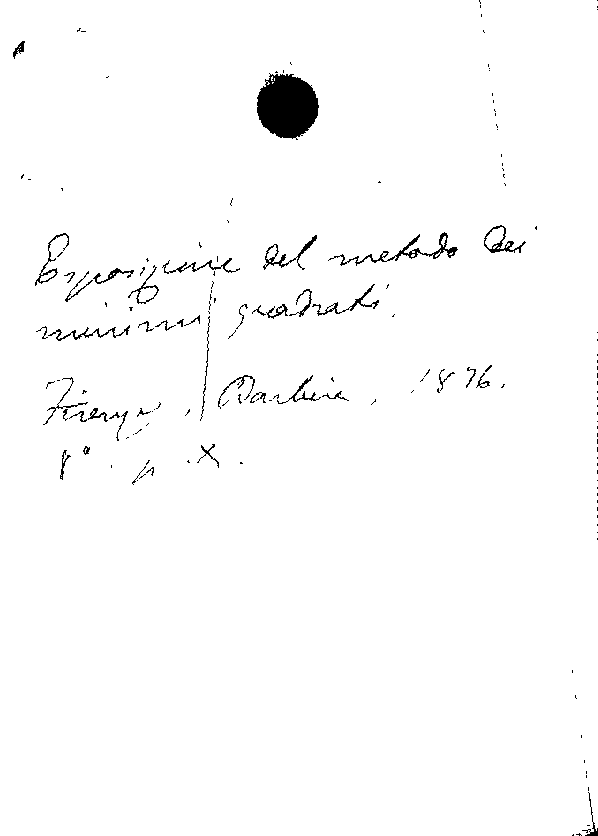 Esposizione del metodo dei
minimi quadrati.
Firenze, Barbèra, 1876.
8° p. X.